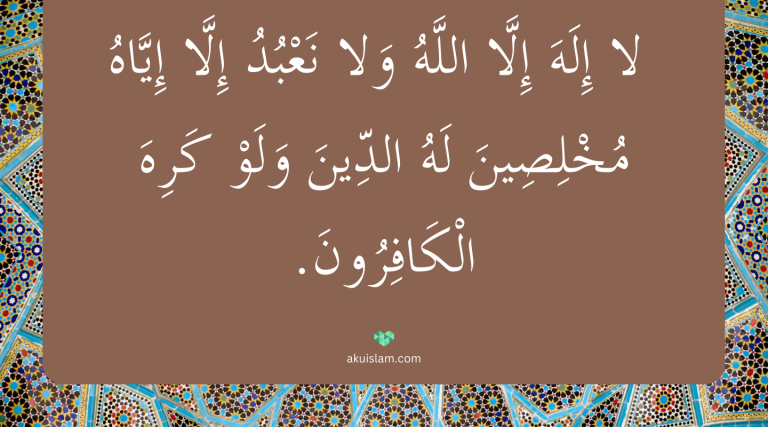 لا إِلَهَ إِلَّا اللَّهُ وَلا نَعْبُدُ إِلَّا إِيَّاهُ
مُخْلِصِينَ لَهُ الدِّينَ وَلَوْ كَرِهَ
الْكَافِرُونَ.
akuislam.com